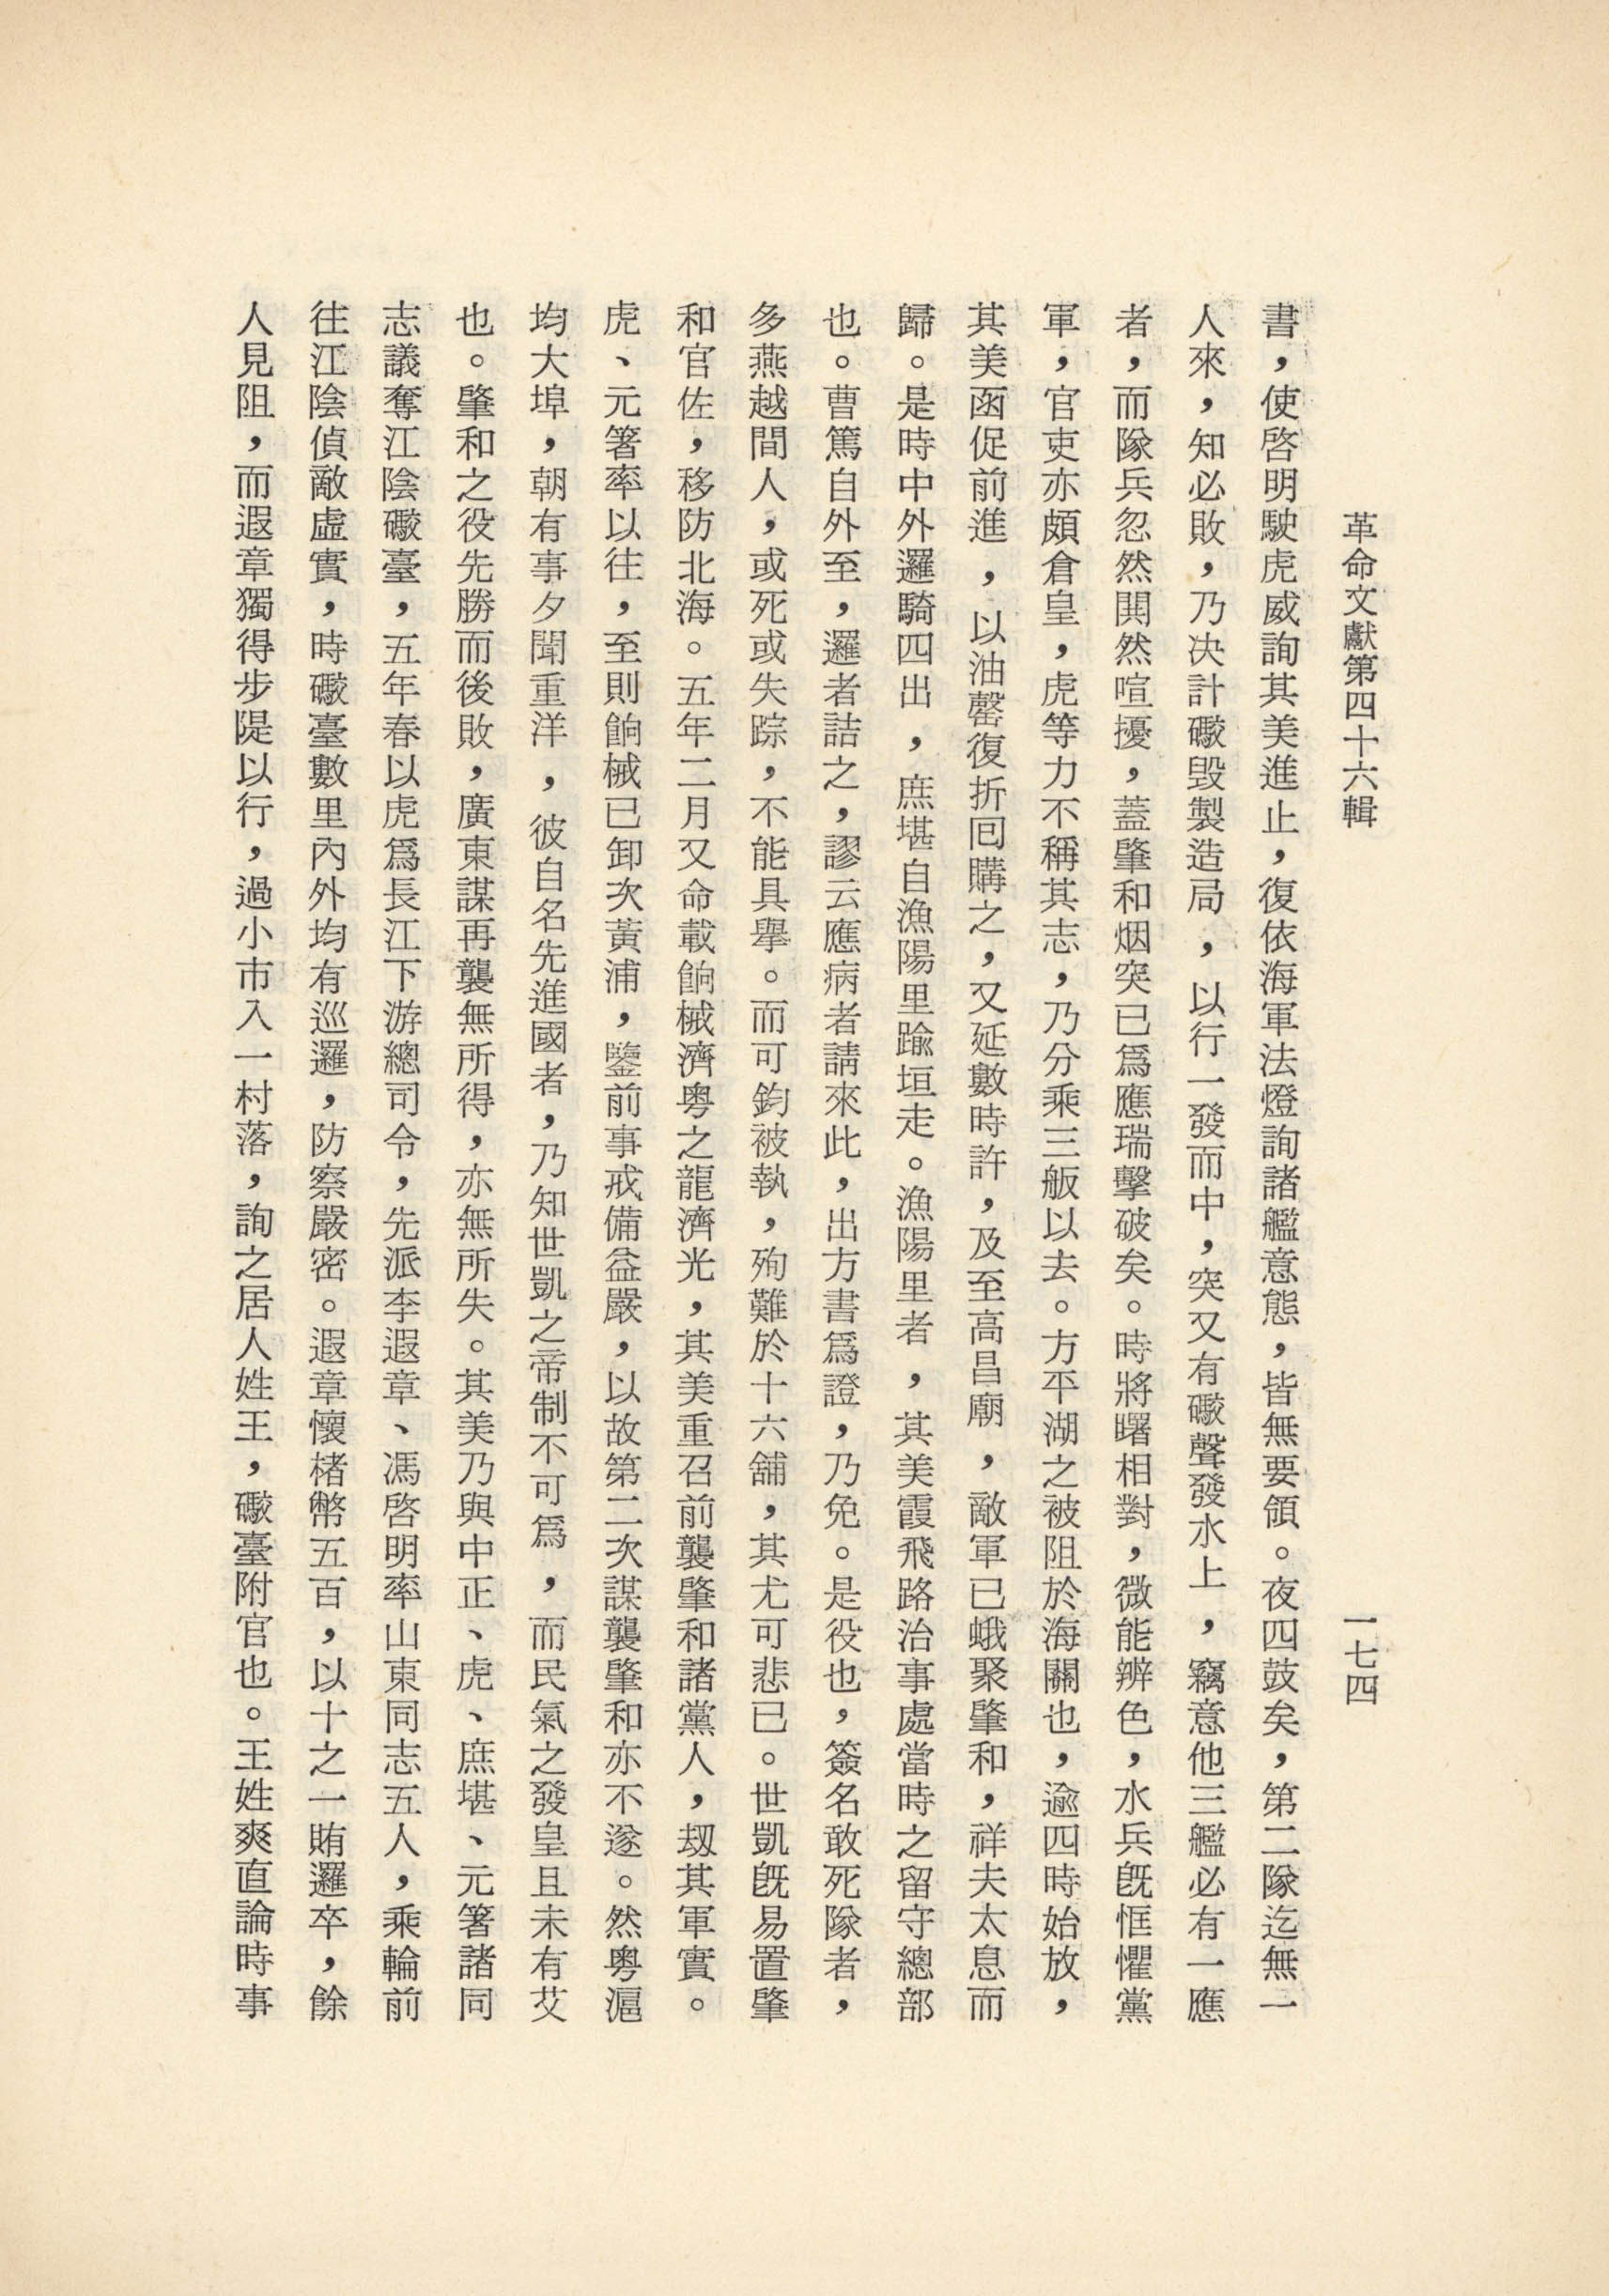 革命文獻第四十六輯
一七四
書，使啓明駛虎威詢其美進止，復依海軍法燈詢諸艦意態，皆無要領。夜四鼓矣，第二隊迄無一
人來，知必敗，乃決計礮毀製造局，以行一發而中，突又有礮聲發水上，竊意他三艦必有一應
者，而隊兵忽然閧然喧擾，蓋肇和烟突已爲應瑞擊破矣。時將曙相對，微能辨色，水兵旣恇懼黨
軍，官吏亦頗倉皇，虎等力不稱其志，乃分乘三舨以去。方平湖之被阻於海關也，逾四時始放，
其美函促前進，以油罄復折囘購之，又延數時許，及至高昌廟，敵軍已蛾聚肇和，祥夫太息而
歸。是時中外邏騎四出，庶堪自漁陽里踰垣走。漁陽里者，其美霞飛路治事處當時之留守總部
也。曹篤自外至，邏者詰之，謬云應病者請來此，出方書爲證，乃免。是役也，簽名敢死隊者，
多燕越間人，或死或失踪，不能具擧。而可鈞被執，殉難於十六舖，其尤可悲已。世凱旣易置肇
和官佐，移防北海。五年二月又命載餉械濟粵之龍濟光，其美重召前襲肇和諸黨人，刼其軍實。
虎、元箸率以往，至則餉械已卸次黃浦，鑒前事戒備益嚴，以故第二次謀襲肇和亦不遂。然粵滬
均大埠，朝有事夕聞重洋，彼自名先進國者，乃知世凱之帝制不可爲，而民氣之發皇且未有艾
也。肇和之役先勝而後敗，廣東謀再襲無所得，亦無所失。其美乃與中正、虎、庶堪、元箸諸同
志議奪江陰礮臺，五年春以虎爲長江下游總司令，先派李遐章、馮啓明率山東同志五人，乘輪前
往江陰偵敵虛實，時礮臺數里內外均有巡邏，防察嚴密。遐章懷楮幣五百，以十之一賄邏卒，餘
人見阻，而遐章獨得步隄以行，過小市入一村落，詢之居人姓王，礮臺附官也。王姓爽直論時事